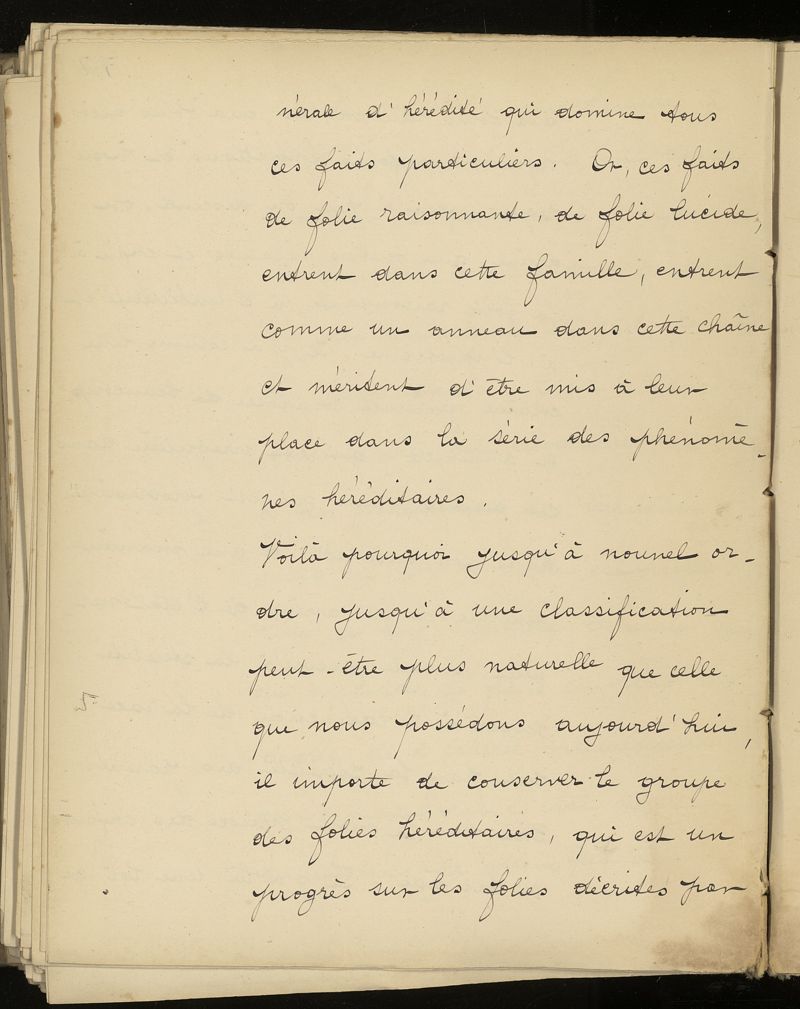 nérale d'hérédité qui domine tous
ces faits particuliers. Or, ces faits
de folie raisonnante, de folie lucide,
entrent dans cette famille, entrent
comme un anneau dans cette chaîne
et méritent d'être mis à leur
place dans la série des phénomè-
nes héréditaires.
Voilà pourquoi jusqu'à nouvel or-
dre, jusqu'à une classification
peut-être plus naturelle que celle
que nous possédons aujourd'hui,
il importe de conserver le groupe
des folies héréditaires, qui est un
progrès sur les folies décrites par